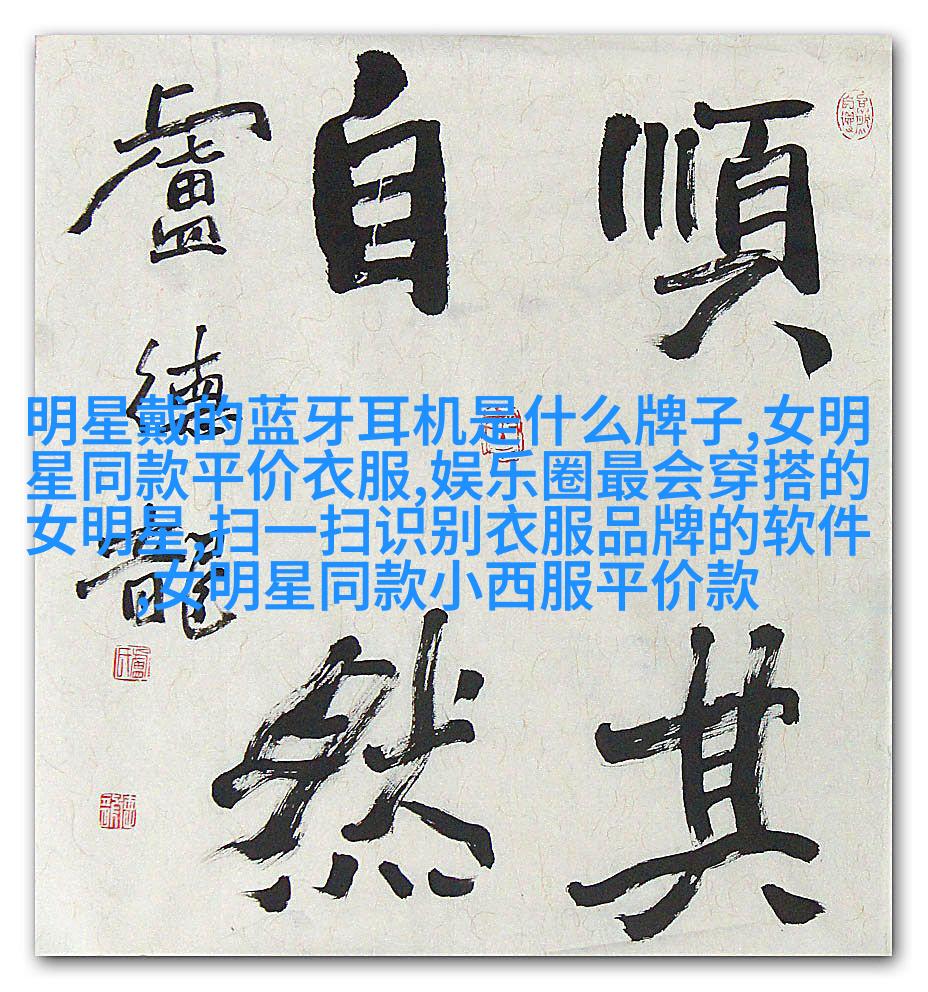 順其
自然
盧德龍
明星戴的蓝牙耳机是什么牌子,女明
星同款平价衣服,娱乐圈最会穿搭的
女明星,扫一扫识别衣服品牌的软件
,女明星同款小西服平价款